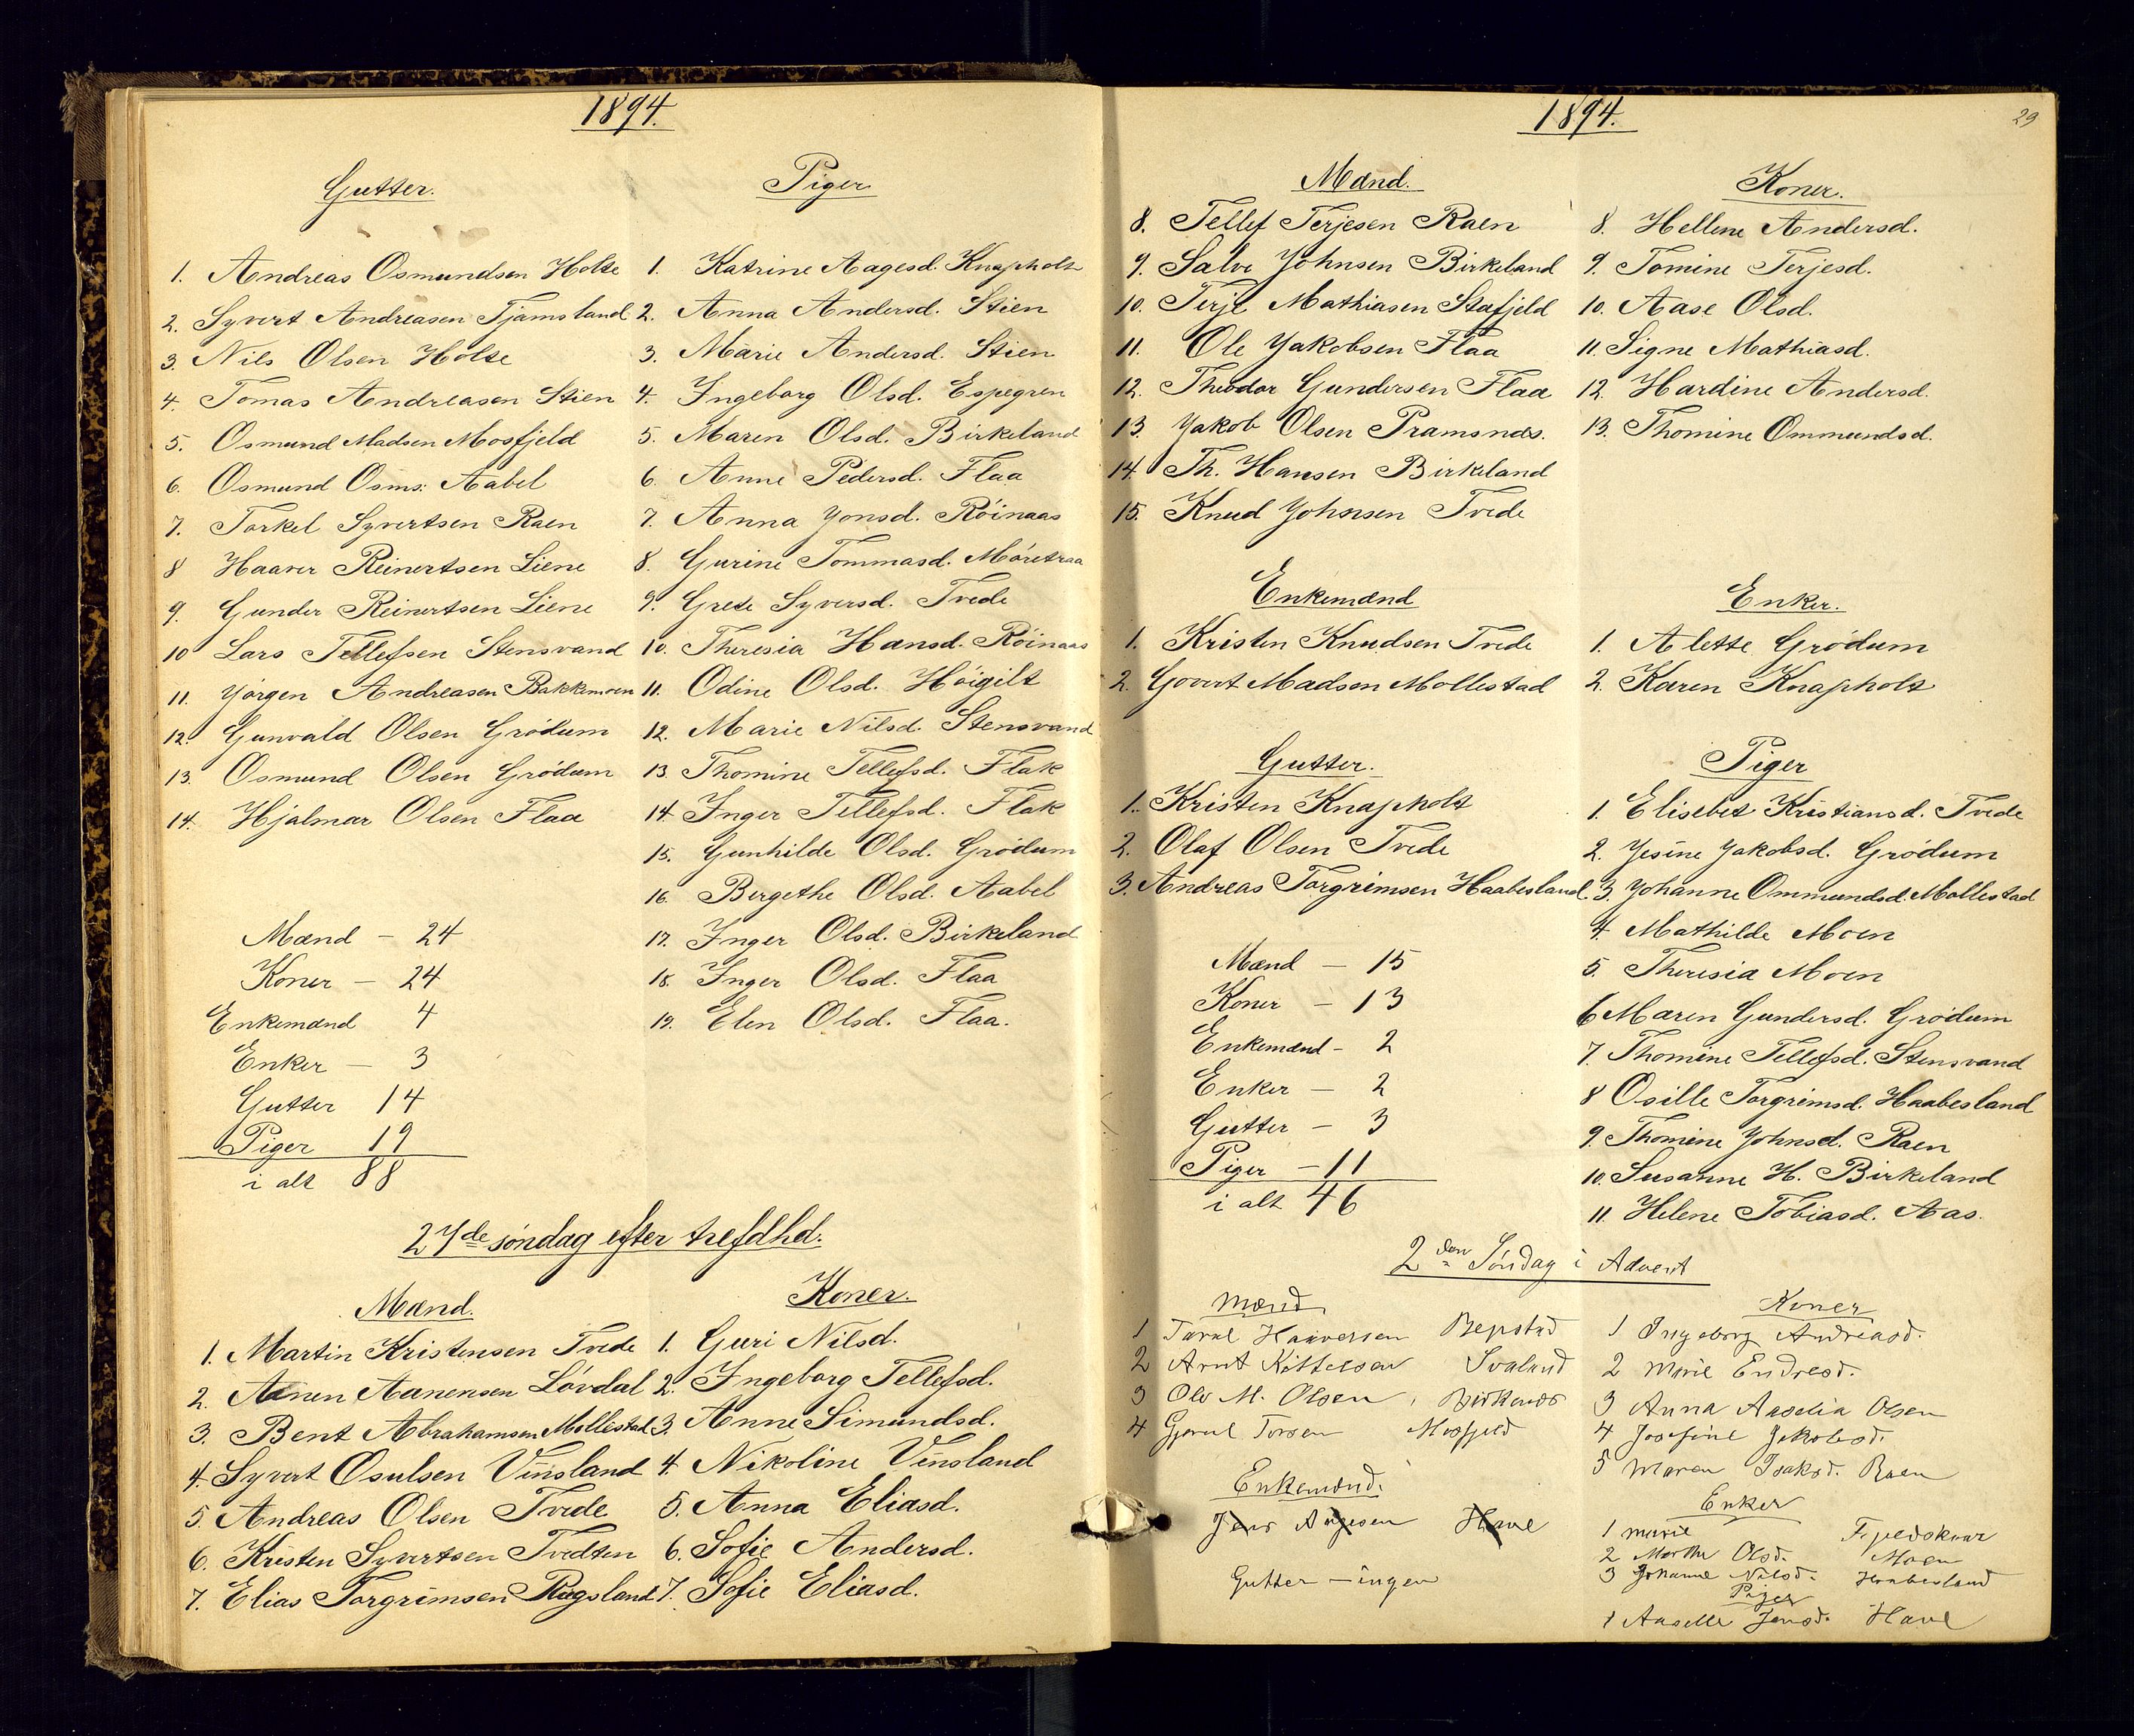 1894.
Gutter.
1. Andreas Osmundsen Holte
2. Syvert Andreasen Tjamsland
3. Nils Olsen Holte
4. Tomas Andreasen Stien
5. Osmund Madsen Mosfjeld
6. Osmund Osms: Aabel
7. Torkel Syvertsen Raen
8 Haaver Reinertsen Liene
9. Gunder Reinertsen Liene
10 Lars Tellefsen Stensvand
11. Yörgen Andreasen Bakkemoen
12. Gunvald Olsen Grödum
13. Osmund Olsen Grödum
14. Hjalmar Olsen Flaa
Piger
1. Katrine Aagesd. Knapholt
2. Anna Andersd. Stien
3. Marie Andersd. Stien
4. Ingeborg Olsd. Espegren
5. Maren Olsd. Birkeland
6. Anne Pedersd. Flaa
7. Anna Yonsd. Röinaas
8. Gurine Tommasd. Möretraa
9. Grete Syversd. Tvede
10. Theresia Hansd. Röinaas
11. Odine Olsd. Höigilt
12. Marie Nilsd. Stensvand
13. Thomine Tellefsd. Flak
14. Inger Tellefsd. Flak
15. Gunhilde Olsd. Grödum
16. Bergethe Olsd. Aabel
17. Inger Olsd. Birkeland
18. Inger Olsd. Flaa
19. Elen Olsd. Flaa.
Mænd – 24
Koner – 24
Enkemænd 4
Enker – 3
Gutter 14
Piger 19
i alt 88
27de söndag efter trefdhd.
Mænd.
1. Martin Kristensen Tvede
2. Aanen Aanensen Lövdal
3. Bent Abrahamsen Mollestad
4. Syvert Osulsen Vinsland
5. Andreas Olsen Tvede
6. Kristen Syvertsen Tvedten
7. Elias Torgrimsen Rugsland
Koner.
1. Guri Nilsd.
2. Ingeborg Tellefsd.
3. Anne Simundsd.
4. Nikoline Vinsland
5. Anna Eliasd.
6. Sofie Andersd.
7. Sofie Eliasd.
1894.
29
Mænd.
8. Tellef Terjesen Raen
9. Salve Yohnsen Birkeland
10. Terje Mathiasen Stafjeld
11. Ole Yakobsen Flaa
12. Theodor Gundersen Flaa
13. Yakob Olsen Pramsnæs.
14. Th. Hansen Birkeland
15. Knud Yohnsen Tvede
Koner.
8. Hellene Andersd.
9. Tomine Terjesd.
10. Aase Olsd.
11. Signe Mathiasd.
12. Hardine Andersd.
13. Thomine Ommundsd.
Enkemænd
1. Kristen Knudsen Tvede
2. Govert Madsen Mollestad
Enker.
1. Alette Grödum
2. Karen Knapholt
Gutter.
1. Kristen Knapholt
2. Olaf Olsen Tvede
3. Andreas Torgrimsen Haabesland.
Piger
1. Elisebet Kristiansd. Tvede
2. Yesine Yakobsd. Grödum
3 Yohanne Ommundsd. Mollestad
4. Mathilde Moen
5. Theresia Moen
6 Maren Gundersd. Grödum
7. Thomine Tellefsd. Stensvand
8 Osille Torgrimsd. Haabesland
9. Thomine Yohnsd. Raen
10. Susanne H. Birkeland
11. Helene Tobiasd. Aas.
Mænd – 15
Koner – 13
Enkemænd – 2
Enker – 2
Gutter – 3
Piger – 11
i alt 46
2den Söndag i Advent
Mænd
1 Taral Haaversen
2 Arnt Kittelsen Svaland
3 Ole M. Olsen, Birkeland
4 Torsen Mosfjeld
Koner
1 Ingeborg Andreasd.
2 Marie Endresd.
3 Anna Aaselia Olsen
4 Josefine Jakobsd.
5 Maren Isaksd. Raen
Enkemænd.
Jens Aagesen Have
Gutter – ingen
Enker
1 Marie
2 Marthe Olsd. Moen
3 Johanne Nilsd. Haabesland
Piger
1 Aaselle Jensd. Have